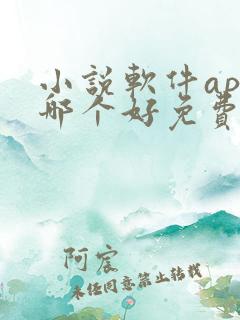 小說軟件ap
哪个好免費
阿宸
未经同意禁止转载